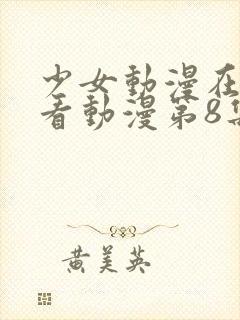 少女動漫在
看動漫第8集
黄美英